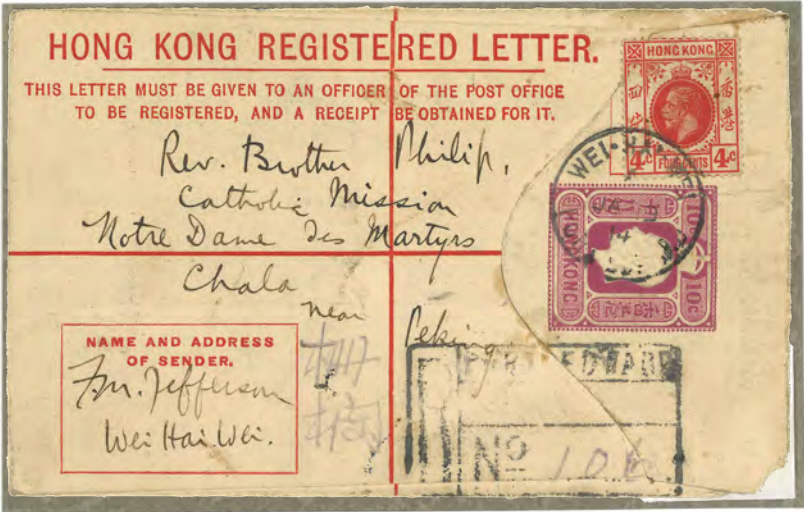 HONG KONG REGISTERED LETTER.
THIS LETTER MUST BE GIVEN TO AN OFFICER OF THE POST OFFICE
TO BE REGISTERED, AND A RECEIPT BE OBTAINED FOR IT.
HONG KONG
4c FOUR CENTS 4c
Rev. Brother Philip,
Catholic Mission
Notre Dame des Martyrs
Chala
near
Peking
WEI-HAI-WEI
JA
14
HONG KONG
10c
10c
NAME AND ADDRESS
OF SENDER.
Jefferson
Wei Hai Wei.
PORT EDWARD
No 106